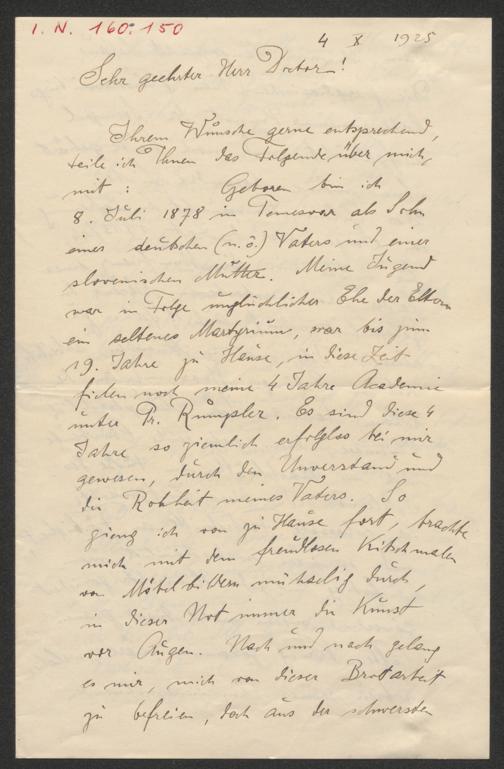 I. N. 160.150
4 X 1925
Sehr geehrter Herr Doctor!
Ihrem Wunsche gerne entsprechend,
teile ich Ihnen das Folgende über mich
mit : Geboren bin ich
8. Juli 1878 in Temesvar als Sohn
eines deutschen (n. ö.) Vaters und einer
slovenischen Mutter. Meine Jugend
war in Folge unglücklicher Ehe der Eltern
ein seltenes Martyrium, war bis zum
19. Jahre zu Hause, in diese Zeit
fielen noch meine 4 Jahre Academie
unter Pr. Rumpler. Es sind diese 4
Jahre so ziemlich erfolglos bei mir
gewesen, durch den Unverstand und
die Rohheit meines Vaters. So
gieng ich von zu Hause fort, brachte
mich mit dem freudlosen Kitschmalen
von Möbelbildern mühselig durch,
in dieser Not immer die Kunst
vor Augen. Nach und nach gelang
es mir, mich von dieser Brotarbeit
zu befreien, doch aus der schwersten